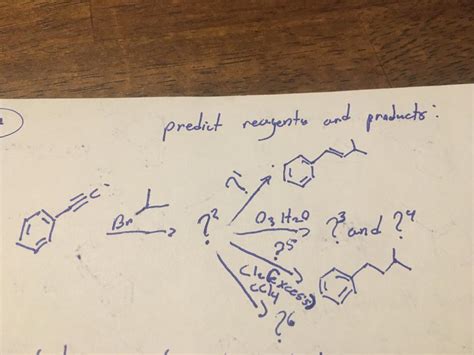 predict reagents and products:
C
Br
?²
?
O₃ H₂O
?³ and ?⁴
?⁵
Cl₂ (excess)
CCl₄
?6